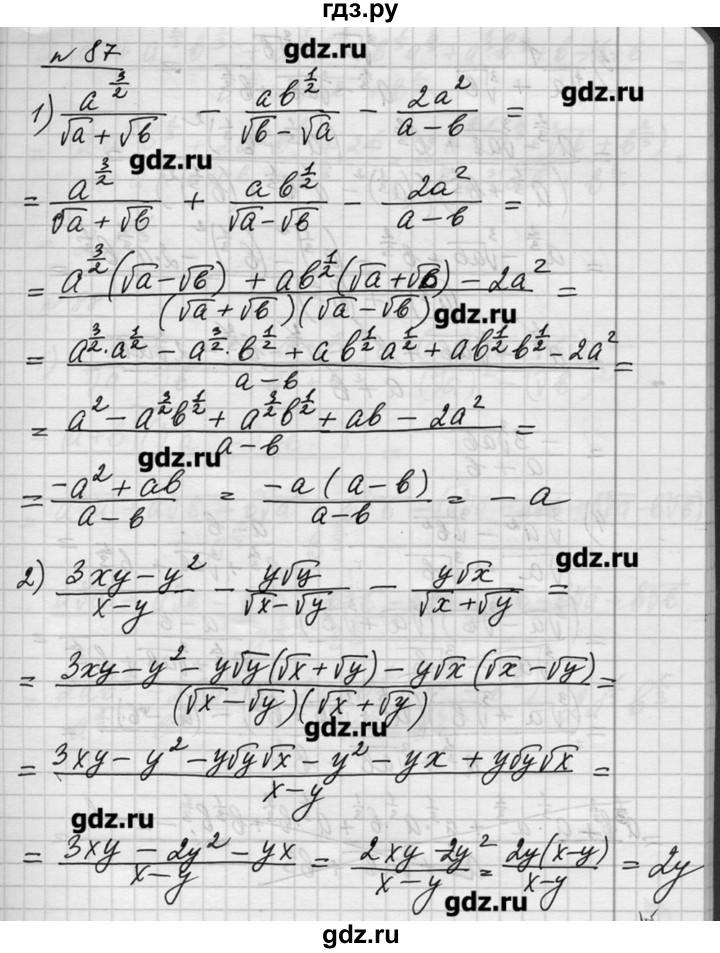 гдз.ру
gdz.ru
№ 87
gdz.ru
1) a^(3/2)/(√a + √b) − ab^(1/2)/(√b − √a) − 2a²/(a − b) =
gdz.ru
= a^(3/2)/(√a + √b) + ab^(1/2)/(√a − √b) − 2a²/(a − b) =
= (a^(3/2)(√a − √b) + ab^(1/2)(√a + √b) − 2a²)/((√a + √b)(√a − √b)) =
gdz.ru
= (a^(3/2)·a^(1/2) − a^(3/2)·b^(1/2) + ab^(1/2)a^(1/2) + ab^(1/2)b^(1/2) − 2a²)/(a − b) =
= (a² − a^(3/2)b^(1/2) + a^(3/2)b^(1/2) + ab − 2a²)/(a − b) =
gdz.ru
= (−a² + ab)/(a − b) = (−a(a − b))/(a − b) = −a
gdz.ru
2) (3xy − y²)/(x − y) − y√y/(√x − √y) − y√x/(√x + √y) =
= (3xy − y² − y√y(√x + √y) − y√x(√x − √y))/((√x − √y)(√x + √y)) =
gdz.ru
= (3xy − y² − y√y√x − y² − yx + y√y√x)/(x − y) =
gdz.ru
= (3xy − 2y² − yx)/(x − y) = (2xy − 2y²)/(x − y) = (2y(x − y))/(x − y) = 2y
gdz.ru
gdz.ru